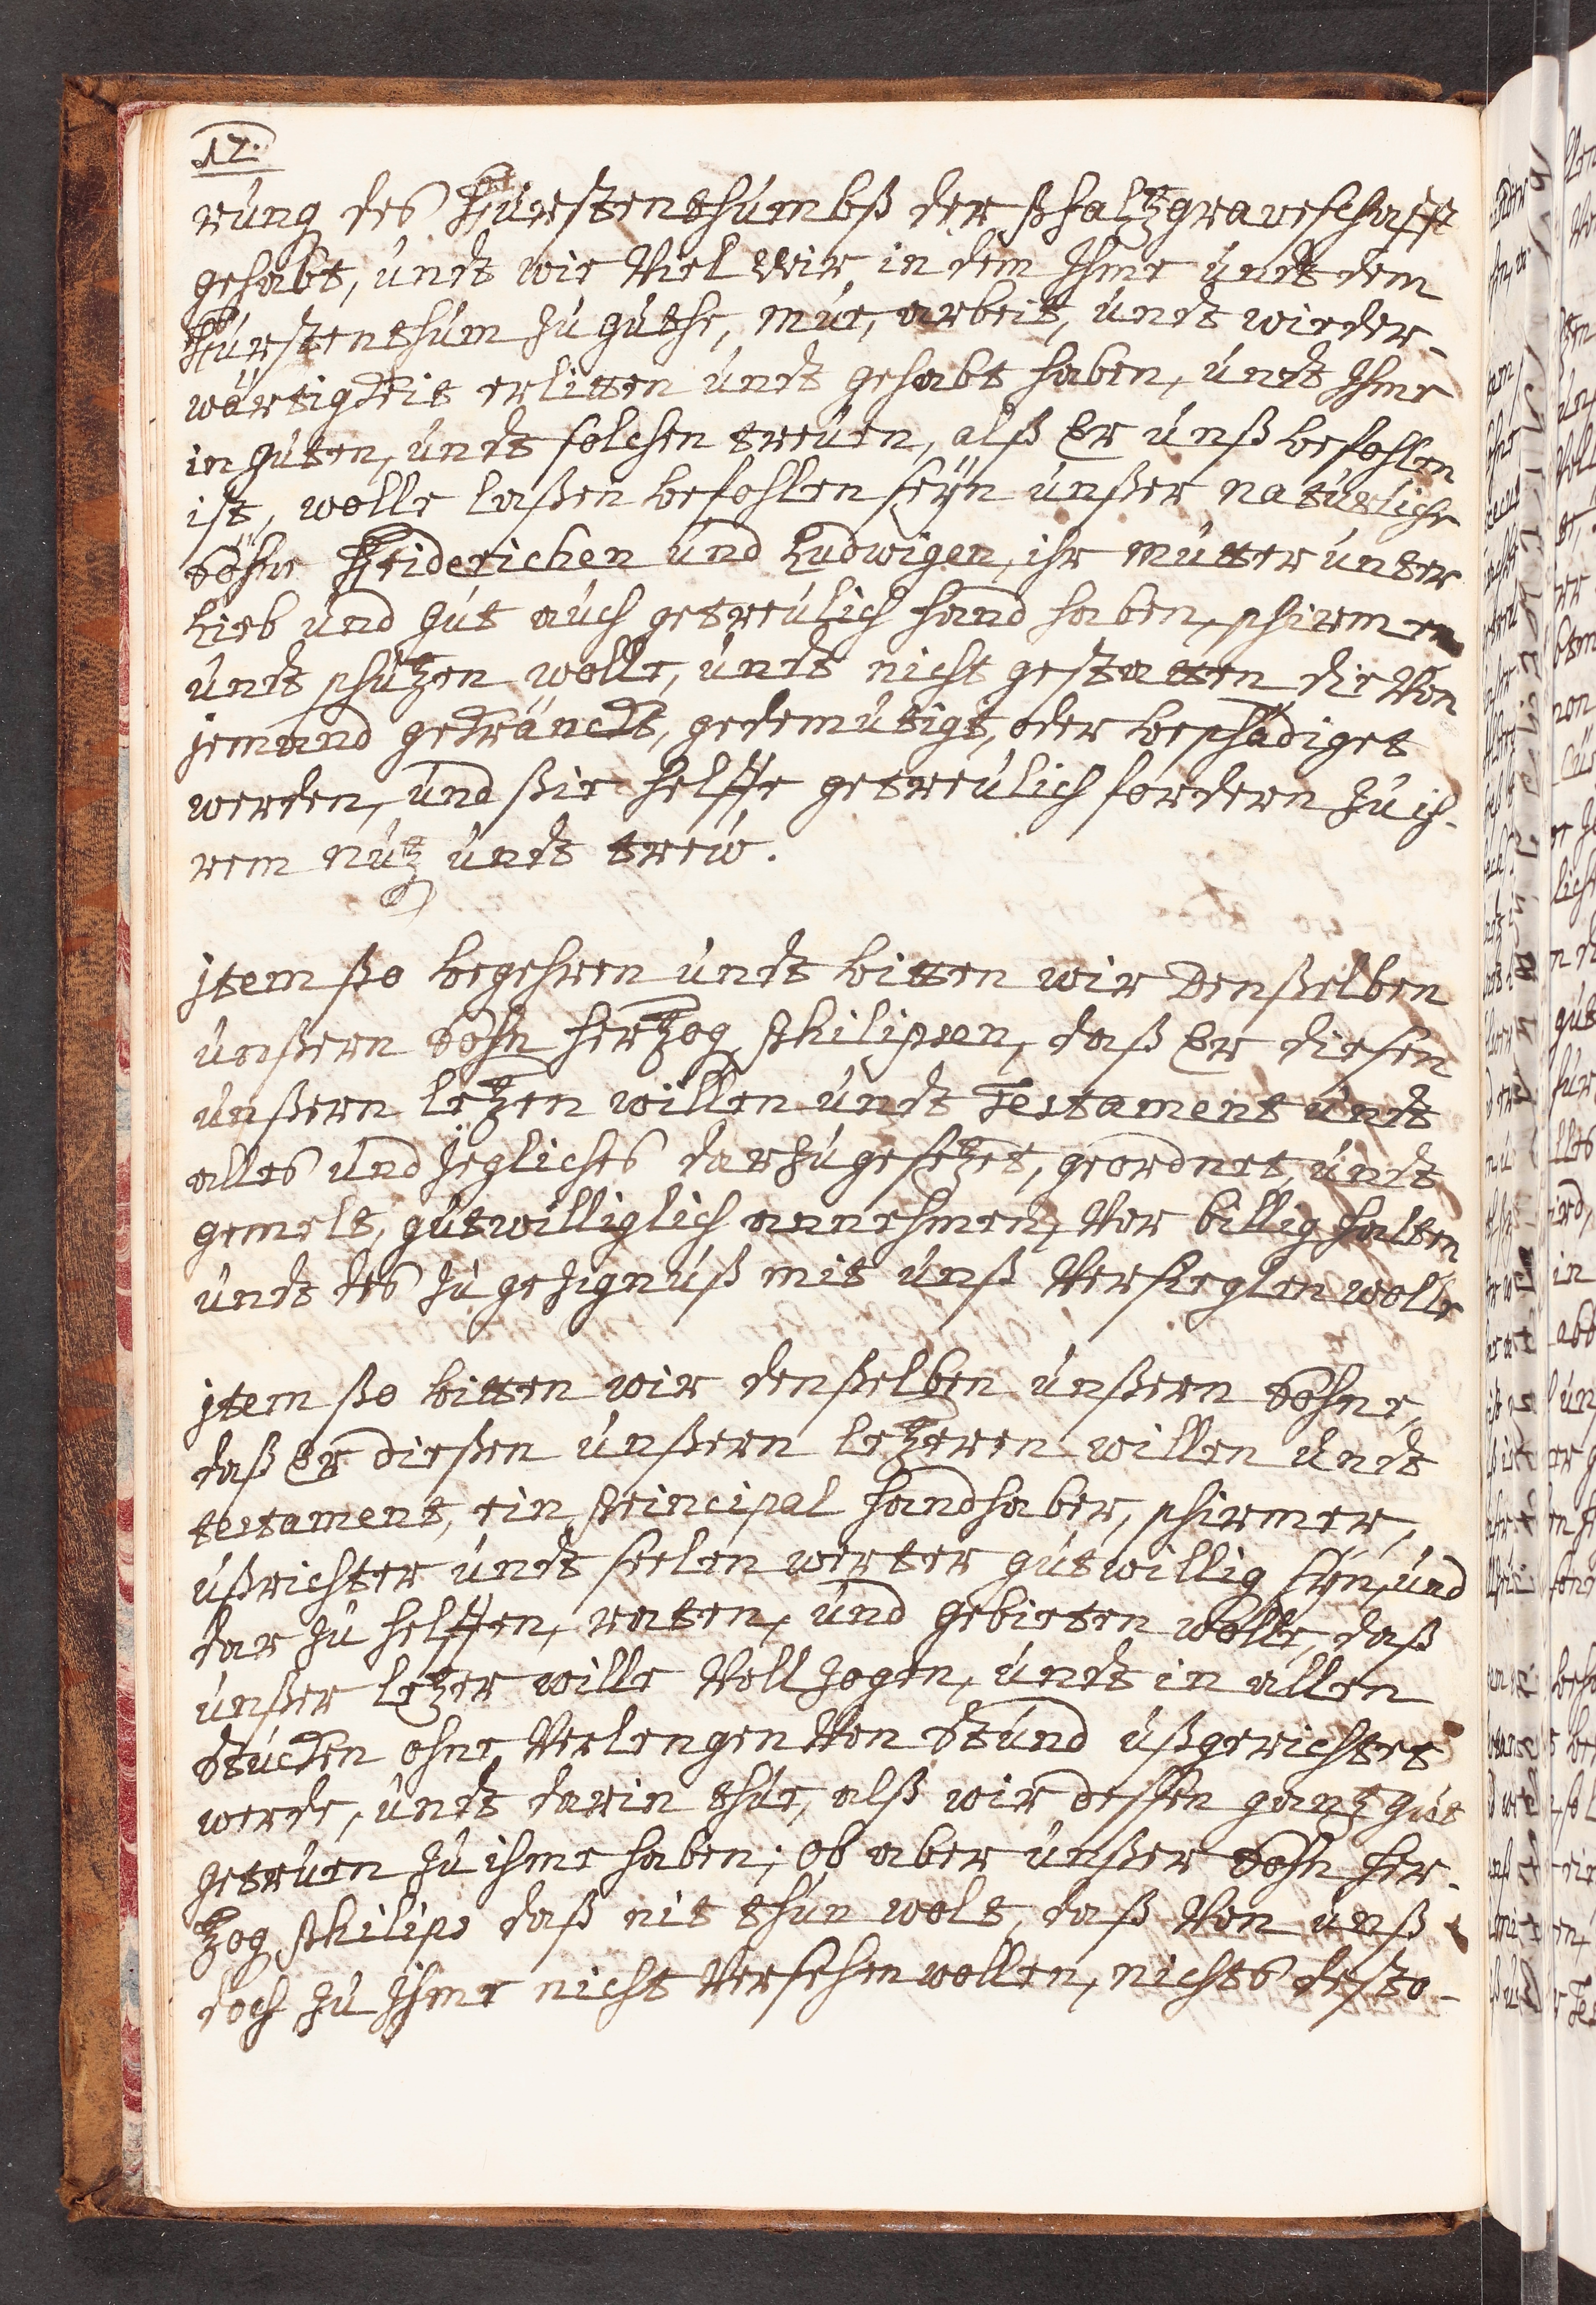 17.
rung des Fürstenthumbß der Pfaltzgraveschafft
gehabt, undt wie Viel Wir in dem Ihme undt dem
Fürstenthum zu guthe, müe, arbeit, undt wieder-
wärtigkeit erlitten undt gehabt haben, undt Ihme
in guten, undt solchen treüen, alß Er unß befohlen
ist, wolle laßen befohlen seÿn unßer natürliche
Söhne Friderichen und Ludwigen, ihr mutter unter
Lieb und gut auch getreülich hand haben, schirmen
undt schützen wolle, undt nicht gestatten die Von
jemand gekränckt, gedemütigt, oder beschädiget
werden, und ßie helffe getreülich fordern zu ih-
rem nutz undt treüw.
jtem ßo begehren undt bitten wir Denßelben
unßern Sohn Hertzog Philipsen, daß Er diesen
unßern letzen willen undt Testament undt
alles und Jegliches darzu gesetzet, geordnet, undt
gemelt, gutwilliglich annehmen, Vor billig halten
undt des zu gezignuß mit unß Versieglen wolle
jtem ßo bitten wir denßelben unßern Sohne,
daß Er dießen unßern letzeren willen undt
testament, ein Principal handhaber, schirmer,
ußrichter undt seelen werter gutwillig sÿn, und
dar zu helffen, raten, und gebieten wölle, daß
unßer letzer wille Vollzogen, undt in allen
Stücken ohne Verlengen Von Stund ußgerichtet
werde, undt darin thüe, alß wir deßen gantz gut
getruen zu ihme haben; ob aber unßer Sohn Her-
tzog Philips daß nit thun wolt, daß Von unß
doch zu Ihme nicht Versehen wollen, nichts desto-